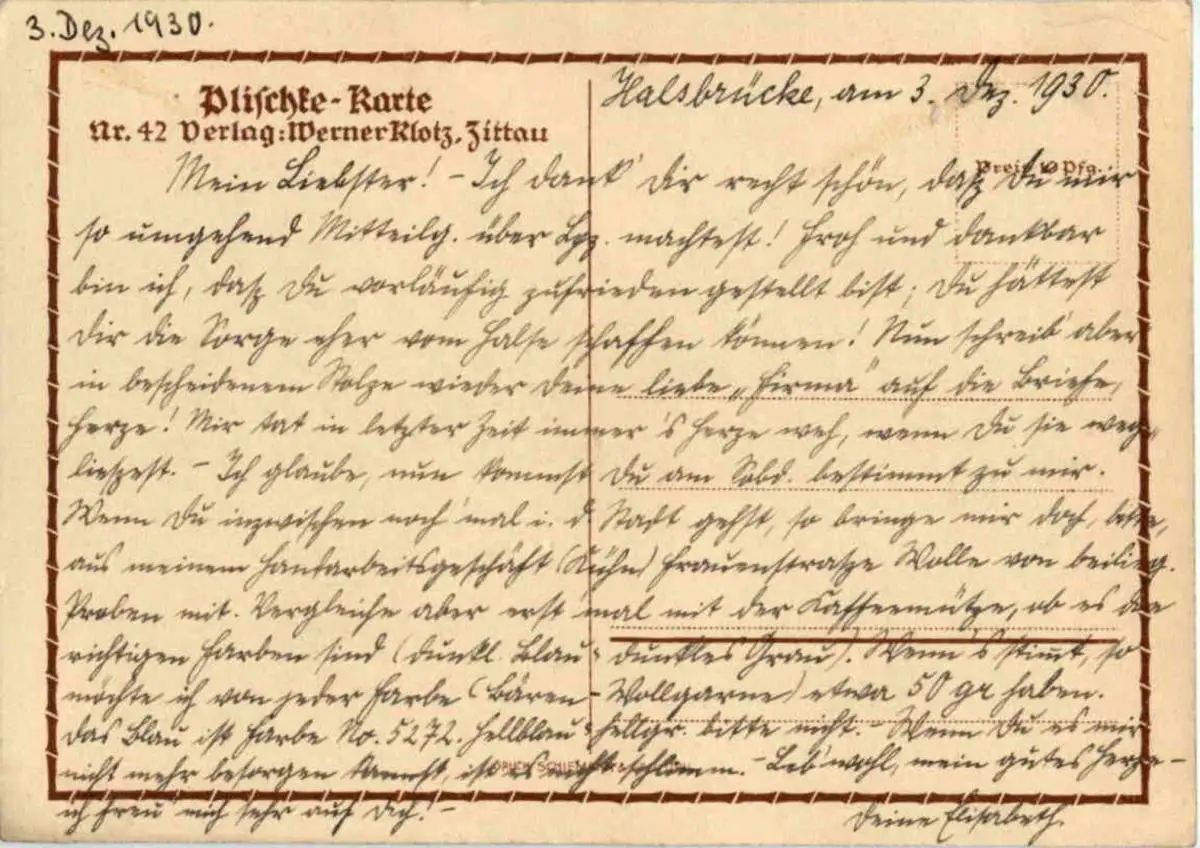 3. Dez. 1930.
Plischke-Karte
Nr. 42 Verlag: Werner Klotz, Zittau
Halsbrücke, am 3. Dez. 1930.
Preis 10 Pfg.
Mein Liebster! – Ich dank' Dir recht schön, dasz Du mir
so umgehend Mitteilg. über Lpz. machtest! Froh und dankbar
bin ich, dasz Du vorläufig zufrieden gestellt bist; Du hättest
Dir die Sorge eher vom Halse schaffen können! Nun schreib' aber
in bescheidenem Stolze wieder Deine liebe „Firma" auf die Briefe,
Herze! Mir tat in letzter Zeit immer 's Herze weh, wenn Du sie weg-
lieszest. – Ich glaube, nun kommst Du am Sobd. bestimmt zu mir.
Wenn Du inzwischen noch 'mal i. d. Stadt gehst, so bringe mir doch, bitte,
aus meinem Handarbeitsgeschäft (Kühn) Frauenstrasze Wolle von beilieg.
Proben mit. Vergleiche aber erst 'mal mit der Kaffeemütze, ob es die
richtigen Farben sind (dunkl. Blau- dunkles Grau). Wenn's stimmt, so
möchte ich von jeder Farbe (Bären-Wollgarne) etwa 50 gr haben.
Das Blau ist Farbe No. 5272. Hellblau- Hellgr. bitte nicht. – Wenn Du es mir
nicht mehr besorgen kannst, ist es nicht schlimm. – Leb' wohl, mein gutes Herze –
ich freu' mich sehr auf Dich! –
Deine Elisabeth.